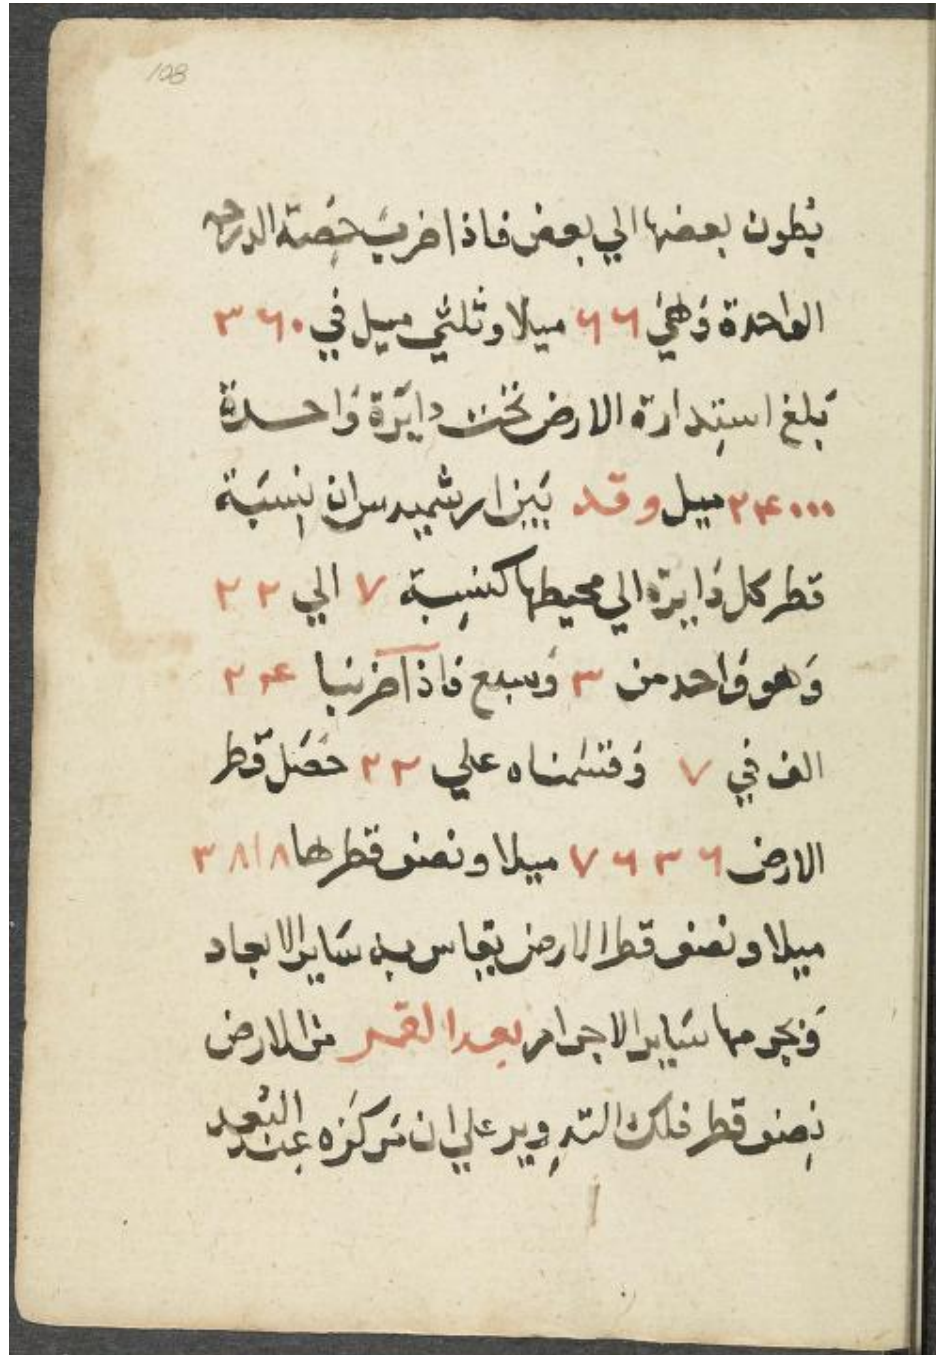 108
بطون بعضها الي بعض فاذا ضربت حصّة الدرجه
الواحدة وَهيَ ٦٦ ميلا وثلثي ميل في ٣٦٠
بَلغ استِدارة الارض تحت دايَرة وَاحدة
٢٤٠٠٠ ميل وقد بَيَن ارشميدس ان نِسبَة
قطر كل دَايرة الي محيطها كنسِبة ٧ الي ٢٢
وَهو وَاحد من ٣ وَسبع فاذا ضربنا ٢٤
الف في ٧ وَقسَمناه علي ٢٢ حصَل قطر
الارض ٧٦٣٦ ميلا ونصف قطرها ٣٨١٨
ميلا ونصف قطر الارض يقاس به سَاير الابعاد
وَبجرمها سَاير الاجرام بعد القمر من الارض
نِصف قطر فلك التدوير علي ان مَركَزه عِند البُعد